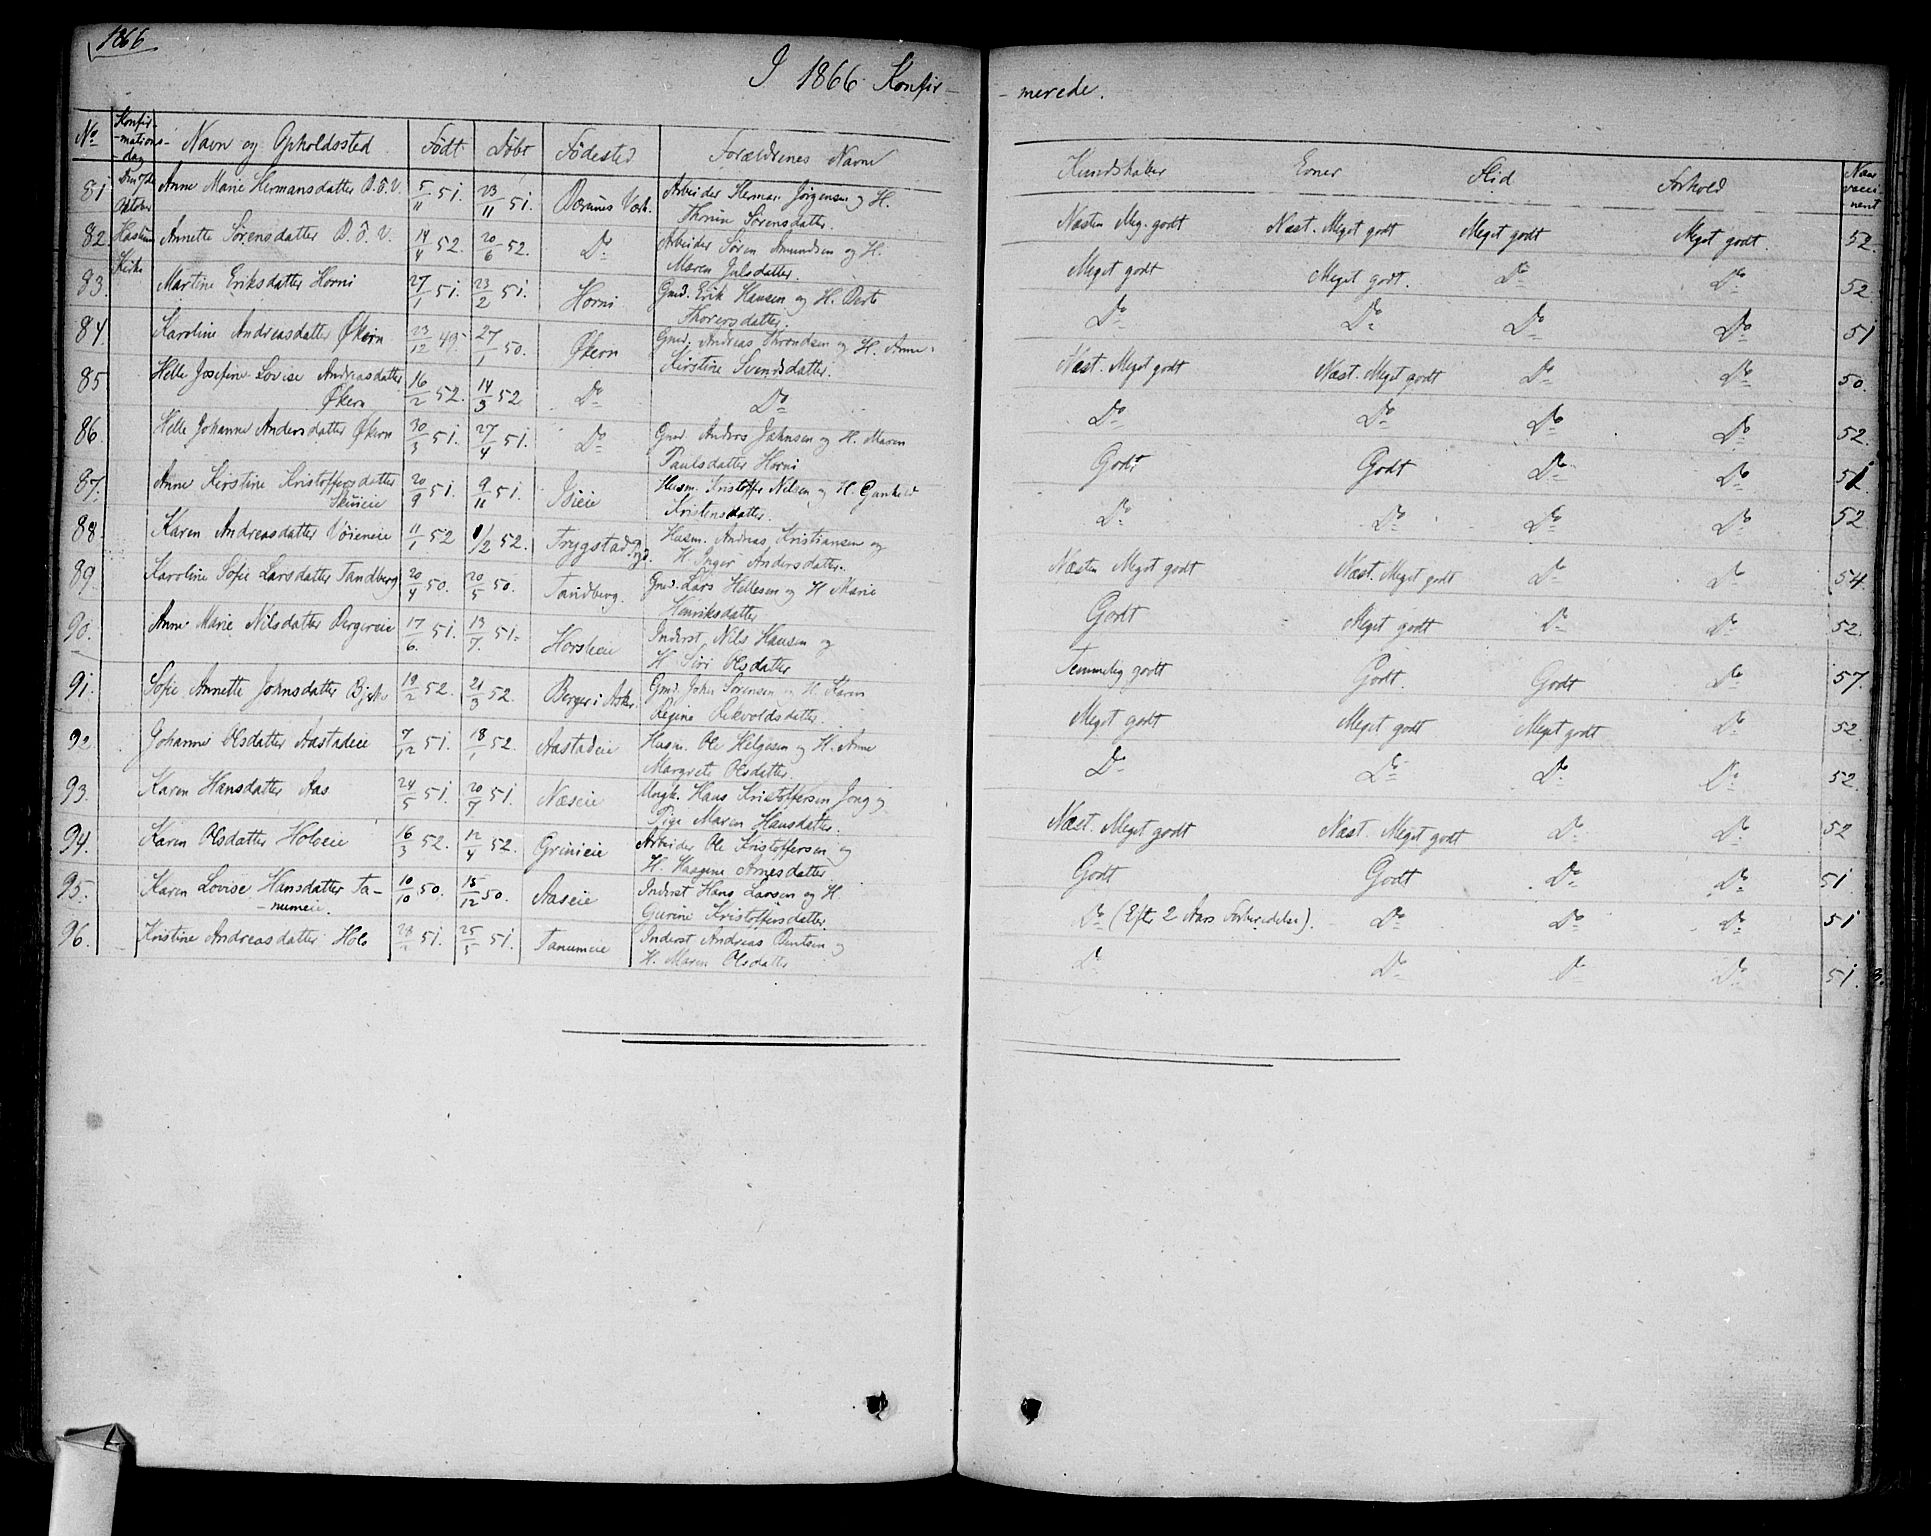 1866
I 1866 Konfir-
-merede.
No Konfir-mations-dag Navn og Opholdssted Født Døbt Fødested Forældrenes Navne Kundskaber Evner Flid Forhold Naar vacci-neret
81 Anne Marie Hermansdatter B. Ö. V. 5/11 51. 23/11 51. Bærums Værk. Arbeider Herman Jörgensen og H. Næsten Meg. godt Næst. Meget godt Meget godt Meget godt. 52
Oktober Thorine Sørensdatter.
82 Haslum Annette Sørensdatter B. Ö. V. 14/4 52. 20/6 52. Do Arbeider Søren Amundsen og H. Meget godt Meget godt. Do Do 52
Kirke Maren Julsdatter.
83. Martine Eriksdatter Horni 27/1 51. 23/2 51. Horni Gmd. Erik Hansen og H. Berte Do Do Do Do 51
Thorersdatter.
84. Karoline Andreasdatter Økern 23/12 49 27/1 50. Økern Gmd. Andreas Throndsen og H. Anne Næst. Meget godt Næst. Meget godt Do Do 50.
Kirstine Svendsdatter.
85 Helle Josefine Lovise Andreasdatter 16/2 52. 14/3 52 Do Do Do Do Do Do 52.
Økern
86. Helle Johanne Andersdatter Økern 30/3 51. 27/4 51. Do Gmd. Anders Johnsen og H. Maren Godt Godt Do Do 51
Paulsdatter Horni
87. Anne Kirstine Kristoffersdatter 20/9 51. 9/11 51. Isieie Husm. Kristoffer Nilsen og H. Gunhild Do Do Do Do 52
Skuieie Kristensdatter.
88. Karen Andreasdatter Vöieneie 11/1 52 1/2 52. Frygstad Husm. Andreas Kristiansen og Næsten Meget godt Næst. Meget godt Do Do 54.
H. Inger Andersdatter.
89. Karoline Sofie Larsdatter Tandberg 20/4 50. 20/5 50. Tandberg. Gmd. Lars Hellesen og H Marie Godt Meget godt Do Do 52.
Henriksdatter
90. Anne Marie Nilsdatter Bergereie 17/6 51. 13/7 51. Horslieie Inderst Nils Hansen og Temmelig godt Godt. Godt Do 57.
H Siri Olsdatter
91. Sofie Annette Johnsdatter 19/2 52. 21/3 52. Berger i Asker Gmd. John Sørensen og H. Karen Meget godt Meget godt Meget godt Do 52.
Regine Rekvoldsdatter.
92. Johanne Olsdatter Aastadeie 7/12 51. 18/1 52. Aastadeie Husm. Ole Helgesen og H. Anne Do Do Do Do 52.
Margrete Olsdatter.
93. Karen Hansdatter Aas 24/5 51. 20/7 51. Næseie Ungk. Hans Kristoffersen Jong og Næst. Meget godt Næst. Meget godt Do Do 52
Pige Maren Hansdatter.
94. Karen Olsdatter Holoeie 16/3 52. 12/4 52. Grinieie Arbeider Ole Kristoffersen og Godt Godt Do Do 51
H. Haagine Arnesdatter
95. Karen Lovise Hansdatter Ta- 10/10 50. 15/12 50. Aaseie Inderst Hans Larsen og H. Do (Efter 2 Aars Forberedelse). Do Do Do 51
-numeie. Gurine Kristoffersdatter.
96. Kristine Andreasdatter Holo 51. 25/5 51. Tanumeie Inderst Andreas Berntsen og Do Do Do Do 51.
H. Maren Olsdatter